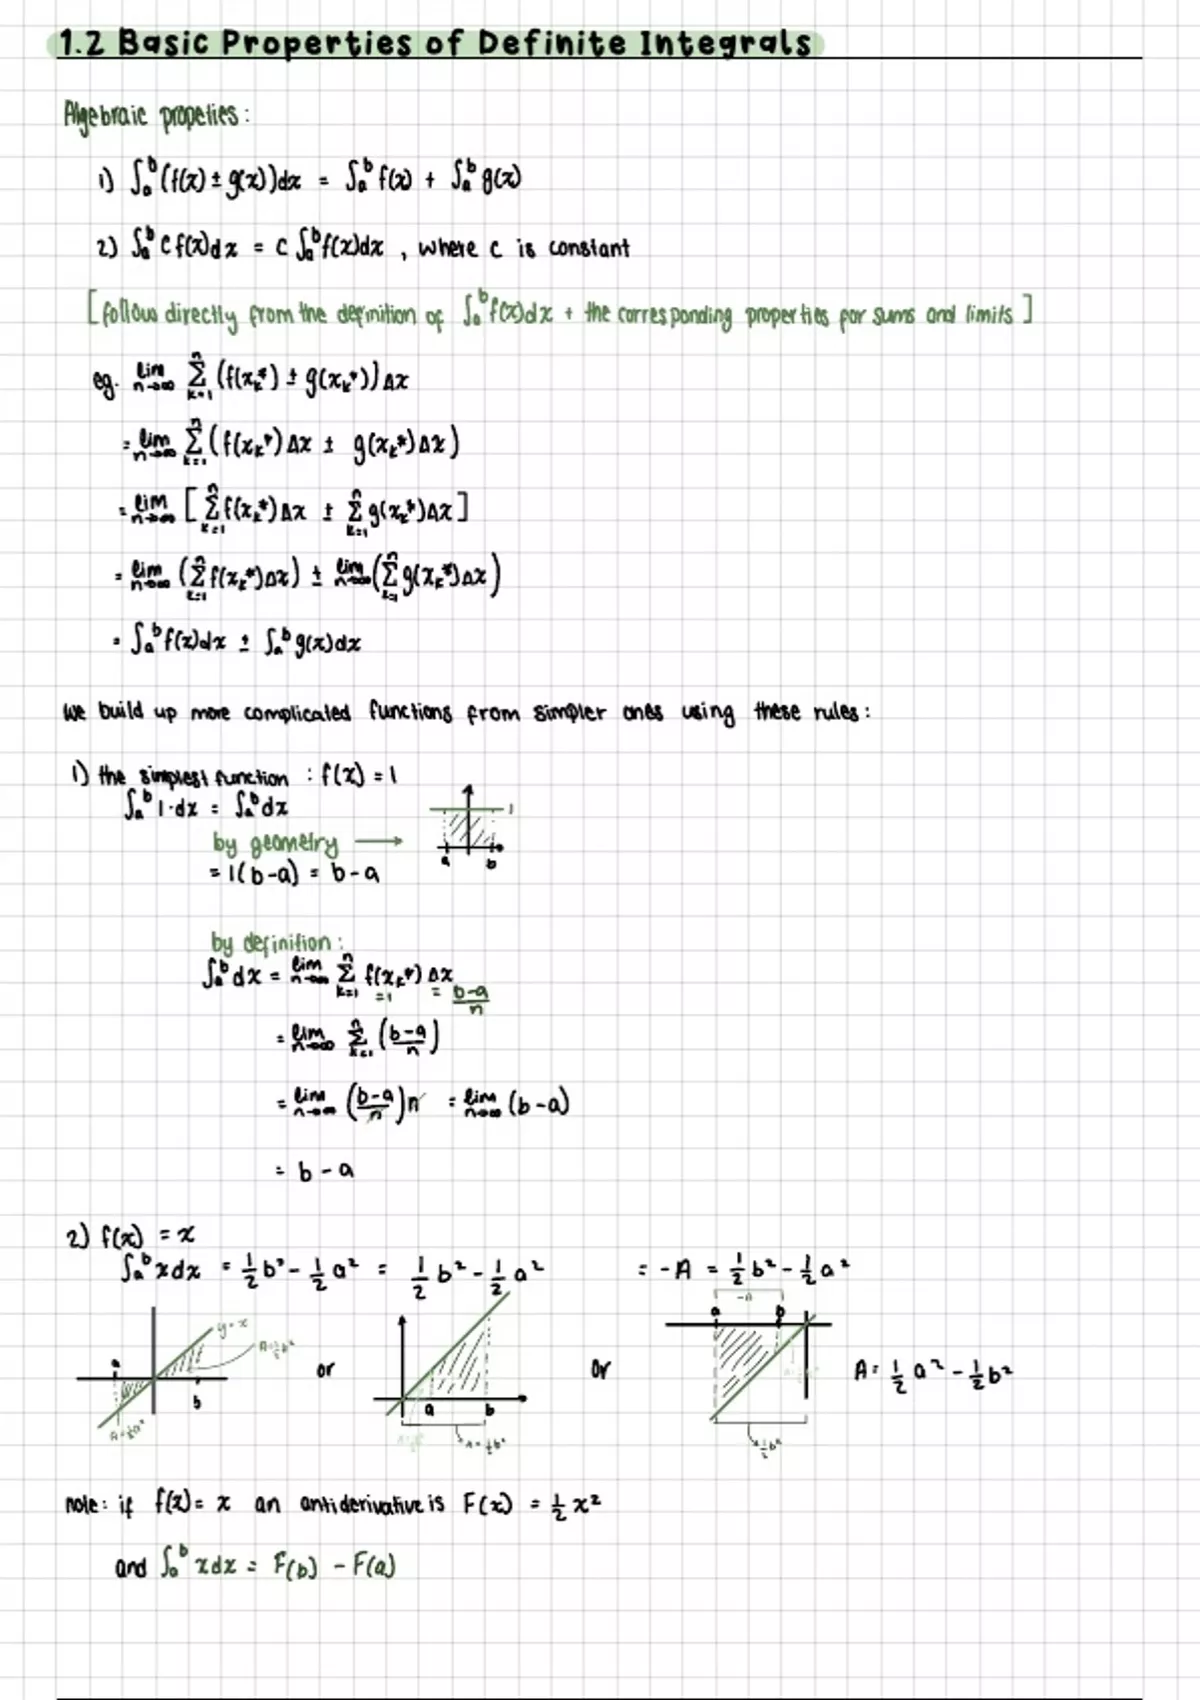 1.2 Basic Properties of Definite Integrals
Algebraic propeties:
1) ∫ₐᵇ (f(x) ± g(x))dx = ∫ₐᵇ f(x) + ∫ₐᵇ g(x)
2) ∫ₐᵇ c f(x)dx = c ∫ₐᵇ f(x)dx , where c is constant
[follows directly from the definition of ∫ₐᵇ f(x)dx + the corresponding properties for sums and limits]
eg. lim n→∞ Σ k=1 n (f(xₖ*) ± g(xₖ*)) Δx
= lim n→∞ Σ k=1 n (f(xₖ*) Δx ± g(xₖ*) Δx)
= lim n→∞ [Σ k=1 n f(xₖ*) Δx ± Σ k=1 n g(xₖ*) Δx]
= lim n→∞ (Σ k=1 n f(xₖ*) Δx) ± lim n→∞ (Σ k=1 n g(xₖ*) Δx)
= ∫ₐᵇ f(x)dx ± ∫ₐᵇ g(x)dx
we build up more complicated functions from simpler ones using these rules:
1) the simplest function : f(x) = 1
∫ₐᵇ 1·dx = ∫ₐᵇ dx
1
by geometry →
a b
= 1(b-a) = b-a
by definition:
∫ₐᵇ dx = lim n→∞ Σ k=1 n f(xₖ*) Δx
=1 = b-a/n
= lim n→∞ Σ k=1 n (b-a/n)
= lim n→∞ (b-a/n)n = lim n→∞ (b-a)
= b-a
2) f(x) = x
∫ₐᵇ xdx = 1/2 b² - 1/2 a² = 1/2 b² - 1/2 a² = -A = 1/2 b² - 1/2 a²
-A
a b
y=x
A=1/2b²
a
or
or
A = 1/2 a² - 1/2 b²
b
a b
A=1/2a²
A=1/2b²
1/2b²
note: if f(x) = x an antiderivative is F(x) = 1/2 x²
and ∫ₐᵇ xdx = F(b) - F(a)